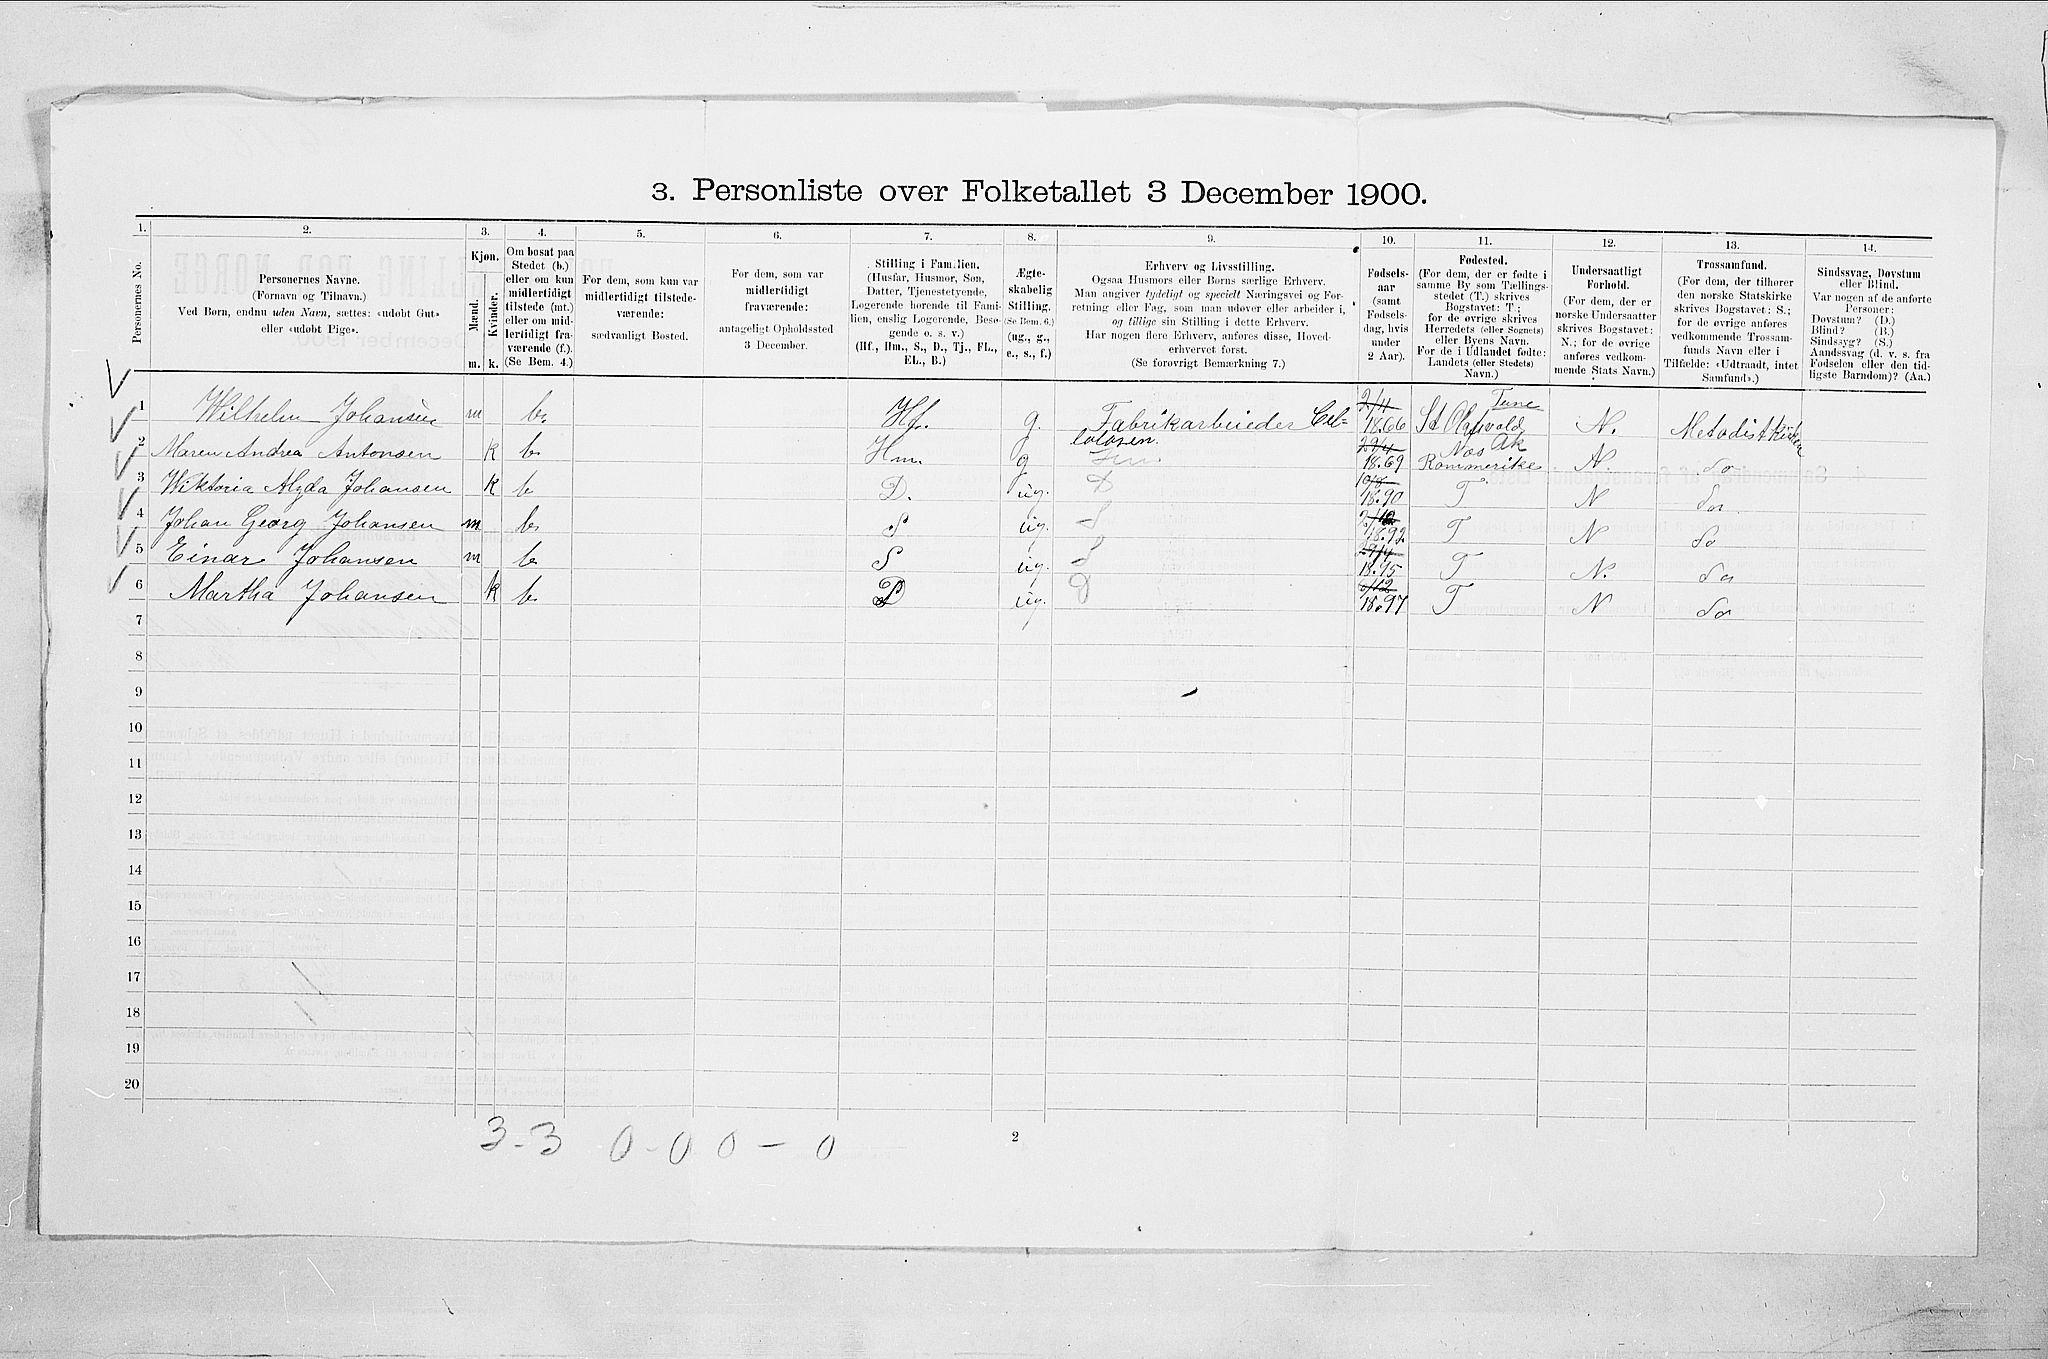 3. Personliste over Folketallet 3 December 1900.
1. 2. 3. 4. 5. 6. 7. 8. 9. 10. 11. 12. 13. 14.
Personernes No.
Personernes Navne.
(Fornavn og Tilnavn.)
Ved Børn, endnu uden Navn, sættes: «udøbt Gut»
eller «udøbt Pige».
Kjøn.
Mænd. Kvinder.
m. k.
Om bosat paa
Stedet (b.)
eller om kun
midlertidigt
tilstede (mt.)
eller om mid-
lertidigt fra-
værende (f.).
(Se Bem. 4.)
For dem, som kun var
midlertidigt tilstede-
værende:
sædvanligt Bosted.
For dem, som var
midlertidigt
fraværende:
antageligt Opholdssted
3 December.
Stilling i Familien.
(Husfar, Husmor, Søn,
Datter, Tjenestetyende,
Logerende hørende til Fami-
lien, enslig Logerende, Besø-
gende o. s. v.)
(Hf., Hm., S., D., Tj., FL.,
EL., B.)
Ægte-
skabelig
Stilling.
(Se Bem. 6.)
(ug., g.,
e., s., f.)
Erhverv og Livsstilling.
Ogsaa Husmors eller Børns særlige Erhverv.
Man angiver tydeligt og specielt Næringsvei og For-
retning eller Fag, som man udøver eller arbeider i,
og tillige sin Stilling i dette Erhverv.
Har nogen flere Erhverv, anføres disse, Hoved-
erhvervet først.
(Se forøvrigt Bemærkning 7.)
Fødsels-
aar
(samt
Fødsels-
dag, hvis
under
2 Aar).
Fødested.
(For dem, der er fødte i
samme By som Tællings-
stedet (T.) skrives
Bogstavet: T.;
for de øvrige skrives
Herredets (eller Sognets)
eller Byens Navn.
For de i Udlandet fødte:
Landets (eller Stedets)
Navn.)
Undersaatligt
Forhold.
(For dem, der er
norske Undersaatter
skrives Bogstavet:
N.; for de øvrige
anføres vedkom-
mende Stats Navn.)
Trossamfund.
(For dem, der tilhører
den norske Statskirke
skrives Bogstavet: S.;
for de øvrige anføres
vedkommende Trossam-
funds Navn eller i
Tilfælde: «Udtraadt, intet
Samfund».)
Sindssvag, Døvstum
eller Blind.
Var nogen af de anførte
Personer:
Døvstum? (D.)
Blind? (B.)
Sindssyg? (S.)
Aandssvag (d. v. s. fra
Fødselen eller den tid-
ligste Barndom)? (Aa.)
1 Wilhelm Johansen m b. Hf. g. Fabrikarbeider Cel- 2/11 1866 St Olafsvold Tune N. Metodistkirken
lulosen.
2 Maren Andrea Antonsen k b. Hm. g Hm. 29/4 1869 Næs Ak Rommerike N. Do
3 Wiktoria Alyda Johansen k b D. ug. D 10/8 1890 T N Do.
4 Johan Georg Johansen m b. S ug. S 1892 T N Do
5 Einar Johansen m b. S ug. S 29/4 1895 T N. Do
6 Martha Johansen k b. D ug. D 1897 T N Do
7
8
9
10
11
12
13
14
15
16
17
18
19
20
3-3 0-0 0-0
2